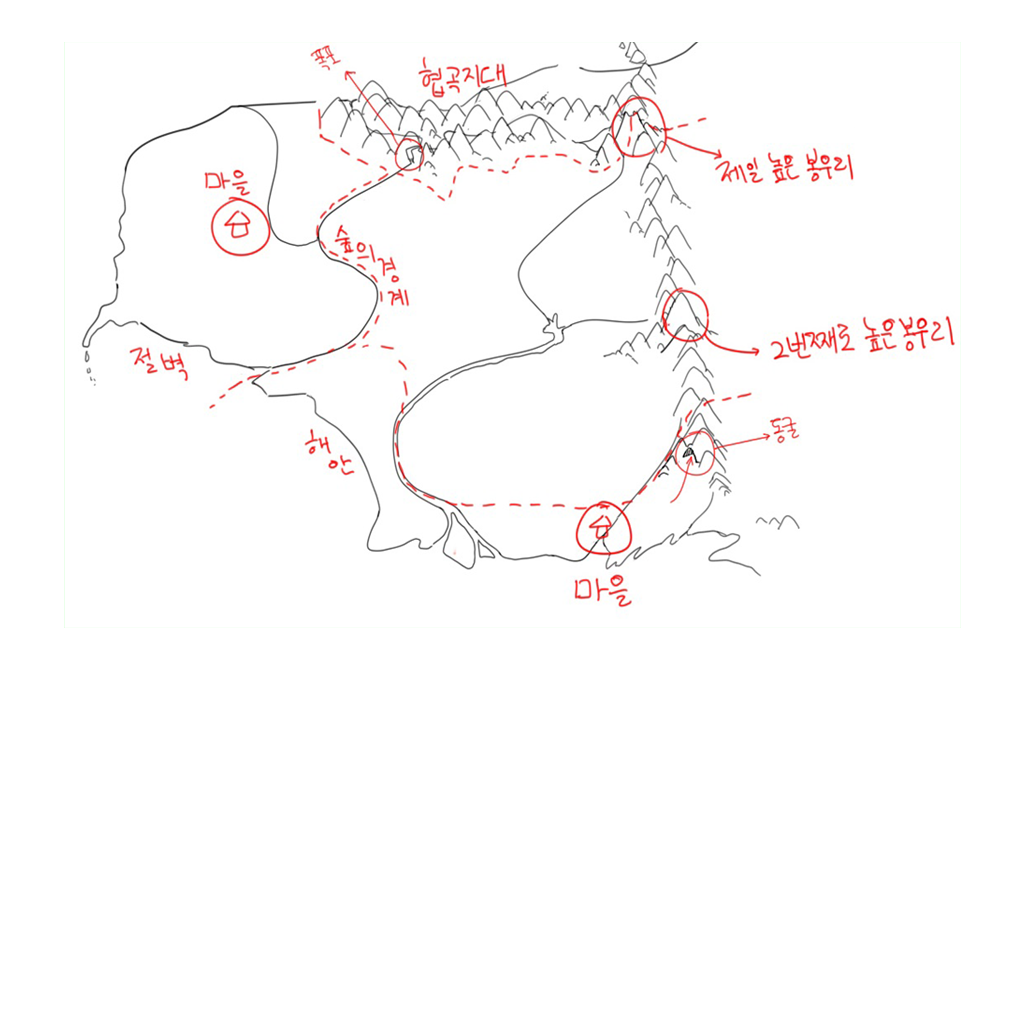 폭포
협곡지대
제일 높은 봉우리
마을
숲의경
계
2번째로 높은봉우리
절벽
동굴
해
안
마을